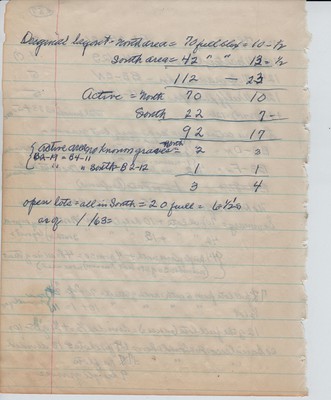 Original layout = North area = 70 full blks = 10 - ½
South area = 42 " " 13 - ½
112 — 23
Active = North 70 10
South 22 7
92 17
active areas no known graves = North 2 3
B2-19 = B4-11
" " South = B2-12 1 1
3 4
open lots = all in South = 20 full = 6 ½s
as of 1/63